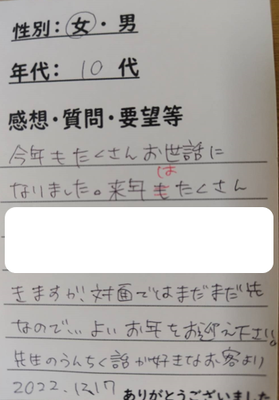 性別：女・男
年代：10代
感想・質問・要望等
今年もたくさんお世話に
は
なりました。来年もたくさん
きますが、対面ではまだまだ先
なので、、よいお年をお迎え下さい。
先生のうんちく話が好きなお客より
2022.12.17 ありがとうございました